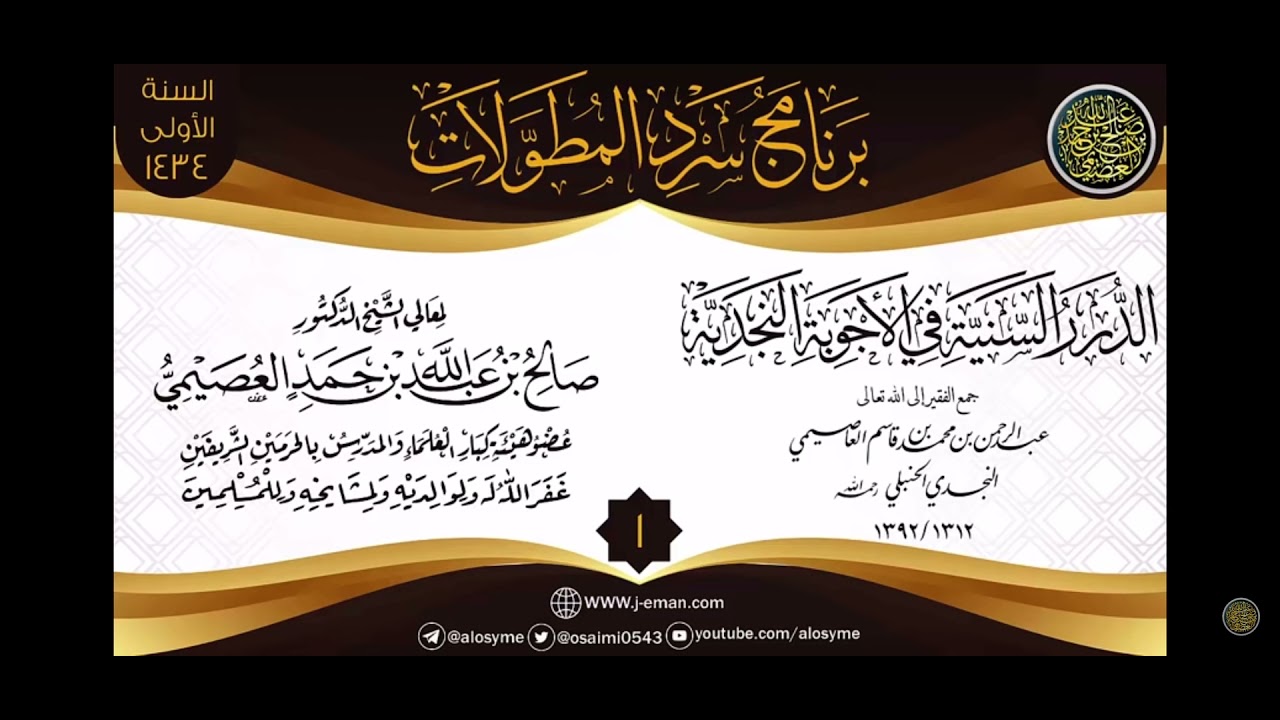 السنة
الأولى
١٤٣٤
بَرنَامَجُ سَرْدِ المُطَوَّلَاتِ
الدُّرَرُ السَّنِيَّة فِي الأَجْوِبَةِ النَّجْدِيَّة
جمع الفقير إلى الله تعالى
عبد الرحمن بن محمد بن قاسم العاصيمي
النجدي الحنبلي رحمه الله
١٣١٢/١٣٩٢
لِمَعَالِي الشَّيْخِ الدُّكْتُورِ
صَالِحُ بْنُ عَبْدِ اللَّهِ بْنِ حَمَدٍ العُصَيْمِيُّ
عُضْوُ هَيْئَةِ كِبَارِ الْعُلَمَاءِ وَالمُدَرِّسُ بِالحَرَمَيْنِ الشَّرِيفَيْنِ
غَفَرَ اللَّهُ لَهُ وَلِوَالِدَيْهِ وَلِمَشَايِخِهِ وَلِلْمُسْلِمِينَ
١
WWW.j-eman.com
@alosyme @osaimi0543 youtube.com/alosyme
صالح بن عبد الله بن حمد العصيمي